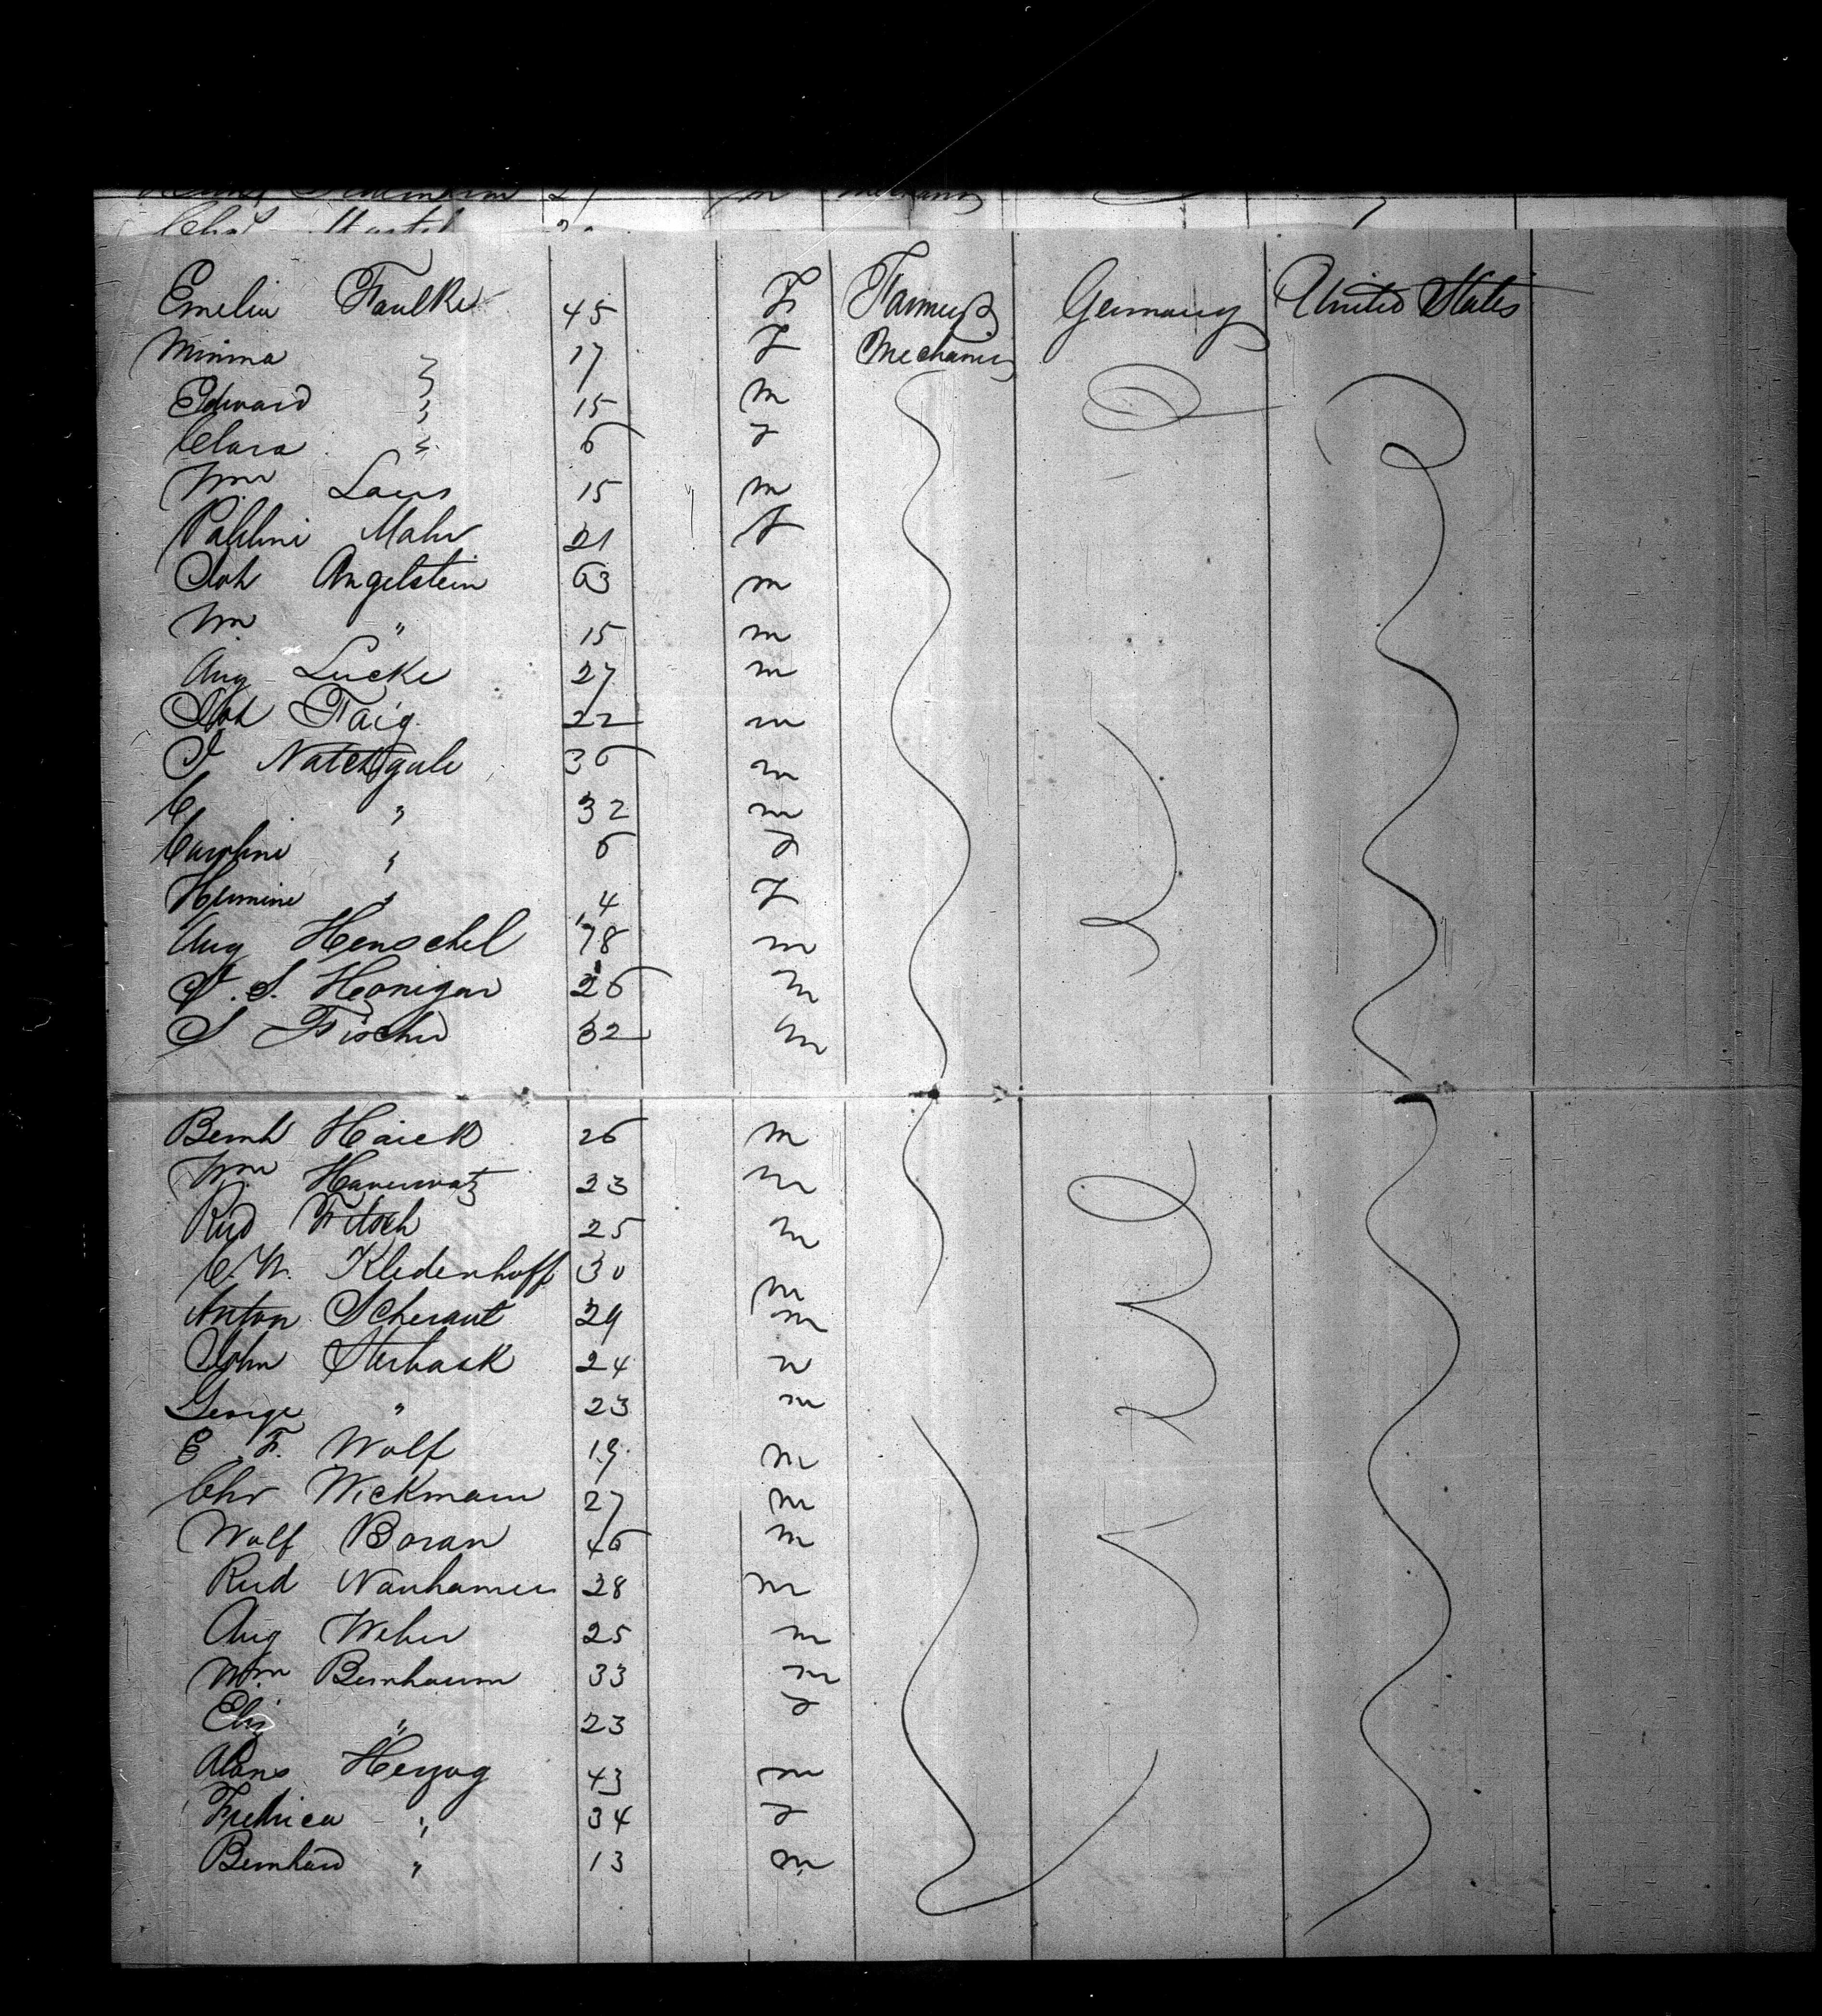 Emelia Faulke 45 F Farmers Germany United States
Minna " 17 F Mechanics
Edward " 15 m
Clara " 6 F
Wm Laus 15 m
Mahr 21 F
Joh Angelstein 63 m
Wm " 15 m
Aug Lucke 27 m
Joh Faig 22 m
J Natchgale 36 m
C " 32 m
Caroline " 6 F
Hermine " 4 F
Aug Henschel 78 m
S. Honigar 26 m
S Fischer 32 m
Bernh Haick 26 m
Wm 23 m
Rud 25 m
C. W. Kledenhoff 30 m
Anton Scheraut 29 m
John Sterback 24 m
George " 23 m
E F. Wolf 19 m
Chr Wickmann 27 m
Wolf Boran 46 m
Rud 28 m
Aug Weber 25 m
Wm Bernhaum 33 m
Eliz " 23 F
Herzog 43 m
Fredrica " 34 F
Bernhard " 13 m